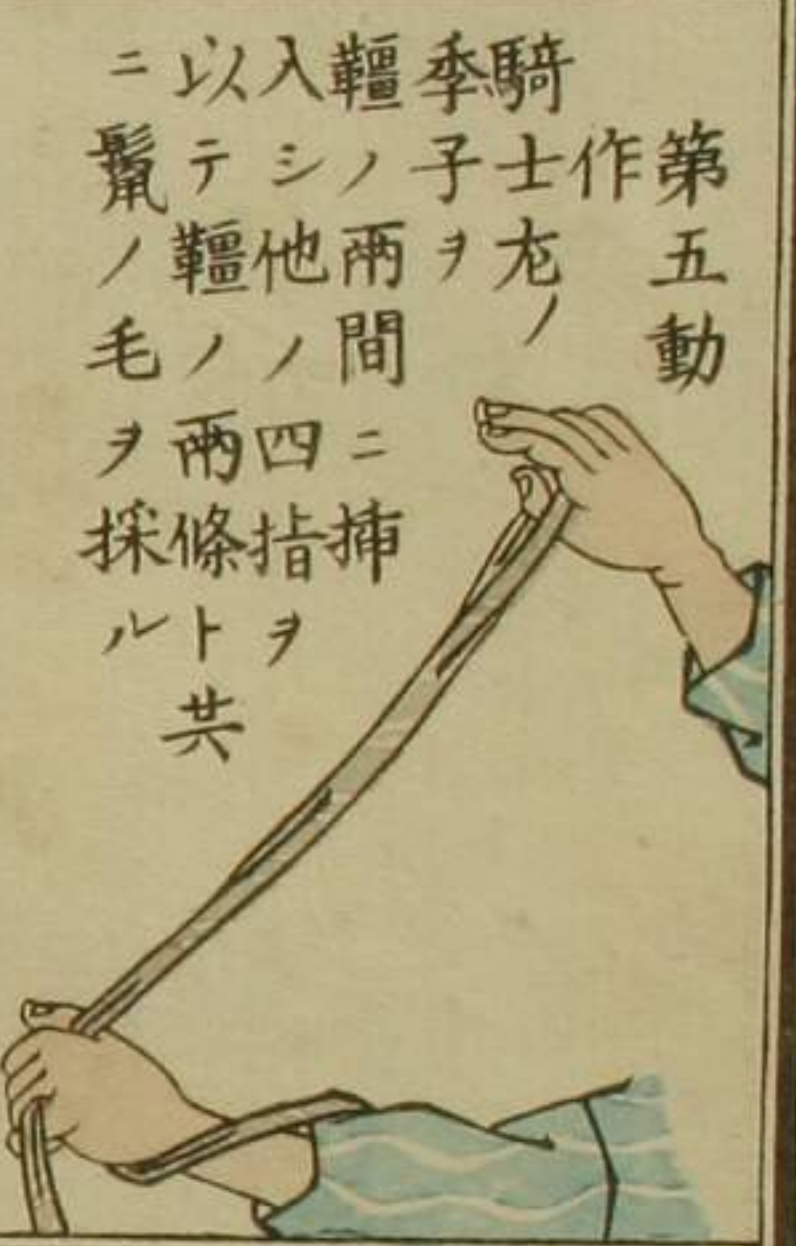 第五動
作
騎士左ノ
季子ヲ
韁ノ兩間ニ挿
入シ他ノ四指ヲ
以テ韁ノ兩條ト共
ニ鬣ノ毛ヲ採ル